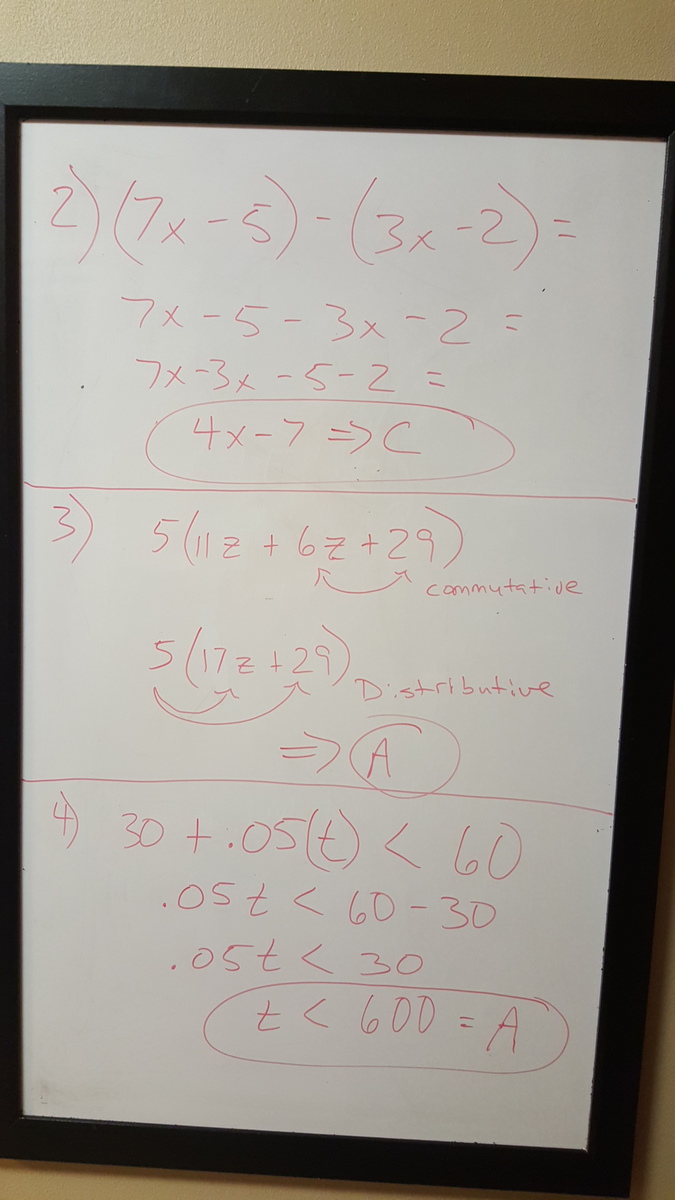 2) (7x - 5) - (3x - 2) =
7x - 5 - 3x - 2 =
7x - 3x - 5 - 2 =
4x - 7 => C
3) 5(11z + 6z + 29)
commutative
5(17z + 29)
Distributive
=> A
4) 30 + .05(t) < 60
.05t < 60 - 30
.05t < 30
t < 600 = A